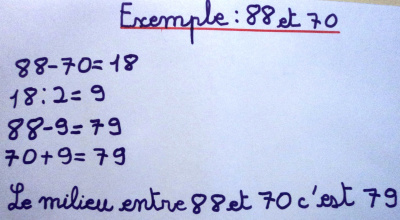 Exemple : 88 et 70
88-70=18
18:2=9
88-9=79
70+9=79
Le milieu entre 88 et 70 c'est 79